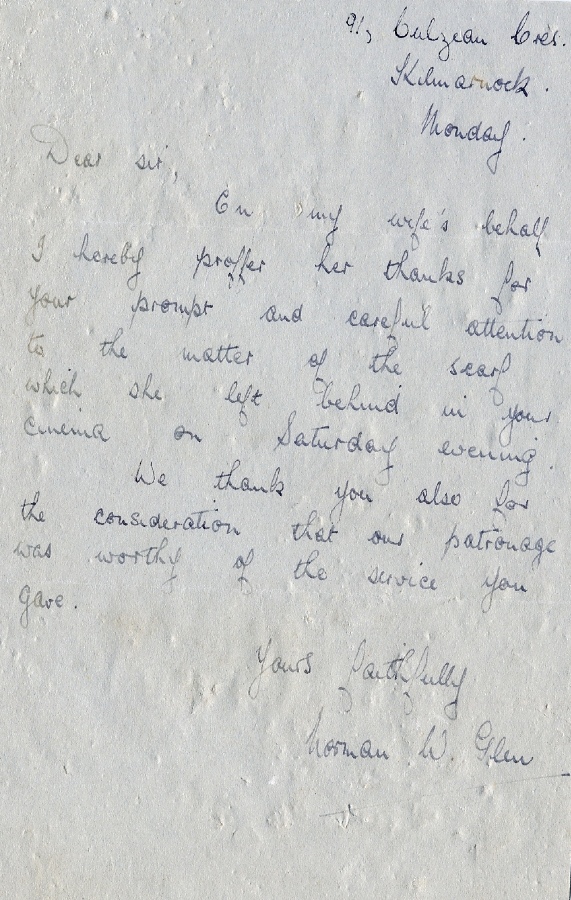 91, Culzean Cres.
Kilmarnock.
Monday.
Dear sir,
On my wife's behalf
I hereby proffer her thanks for
your prompt and careful attention
to the matter of the scarf
which she left behind in your
cinema on Saturday evening.
We thank you also for
the consideration that our patronage
was worthy of the service you
gave.
Yours faithfully
Norman W. Glen